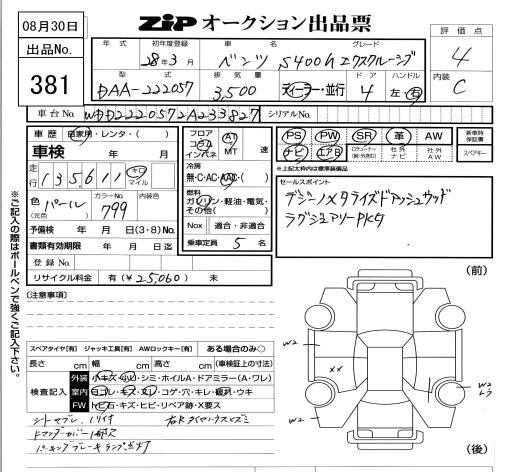 08月30日
出品No.
381
ZIP オークション出品票
評価点
4
内装
C
年式 初年度登録 車名 グレード
28年3月 ベンツ S400h エクスクルーシブ
型式 排気量 ドア ハンドル
DAA-222057 3,500 ディーラー・並行 4 左・右
車台No. WDD2220572A233827 シリアルNo.
車歴 自家用・レンタ・( )
車検 年 月
走行 135,611 キロ マイル
色(元色) パール カラーNo. 799 内装色
予備検 年 月 日(3・8)No.
書類有効期限 年 月 日迄
登録No.
リサイクル料金 有(¥25,060) 未
フロア コラム インパネ AT MT 速
冷房
無・C・AC・AAC・( )
燃料
ガソリン・軽油・電気・その他( )
Nox 適合・非適合
乗車定員 5 名
PS PW SR 革 AW
ナビ エアB 社外ナビ 社外AW
新車時保証書
スペアキー
*上記太枠内は標準装備品
セールスポイント
デジーノメタライズドアッシュウッド
ラグジュアリーPKG
※ご記入の際はボールペンで強くご記入下さい。
〔注意事項〕
スペアタイヤ[有] ジャッキ工具[有] AWロックキー[有] ある場合のみ○
長さ cm 幅 cm 高さ cm (車検証上の寸法)
検査記入
外装 小キズ・凹・シミ・ホイルA・ドアミラー(A・ワレ)
室内 ヨゴレ・キズ・スレ・コゲ・穴・キレ・破れ・ウキ
FW トビ石・キズ・ヒビ・リペア跡・X要ス
パーキングブレーキランプ点灯
(前)
W2
xx
W2
W2
(後)